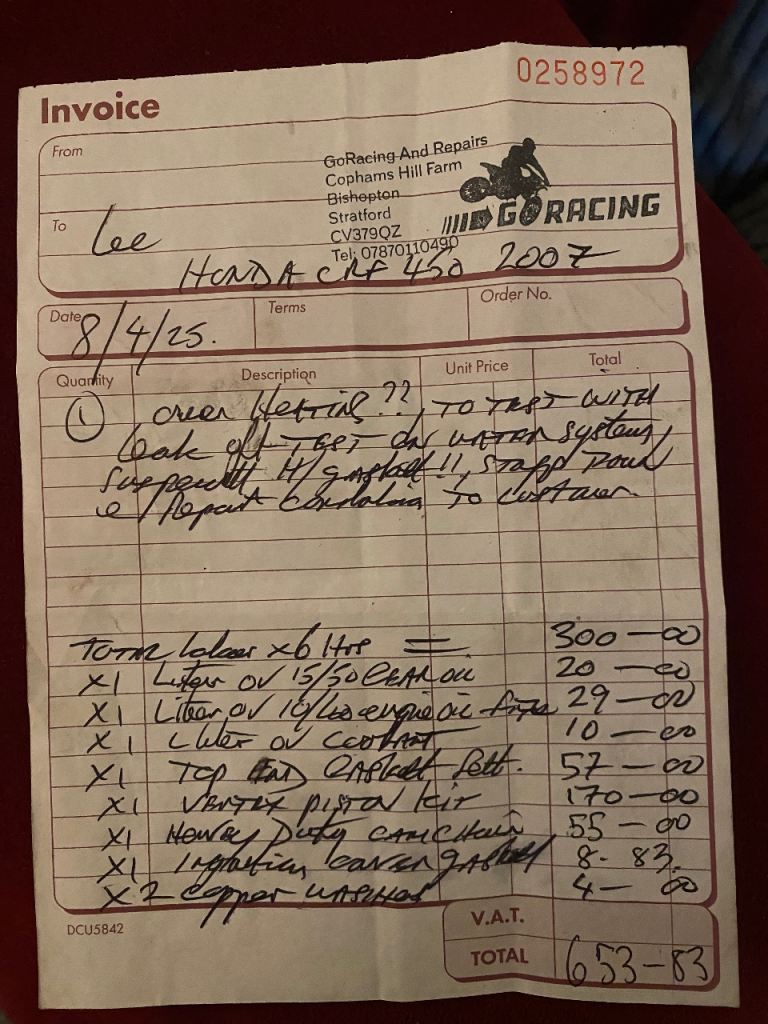 0258972
Invoice
From
GoRacing And Repairs
Cophams Hill Farm
Bishopton
Stratford
CV379QZ
Tel: 07870110490
GORACING
To
Lee
HONDA CRF 450 2007
Date
8/4/25.
Terms
Order No.
Quantity
Description
Unit Price
Total
① over Heating ??, TO TEST WITH
leak off TEST ON WATER system,
H/gasket !!, Down
Report TO customer.
TOTAL labour x6 Hrs = 300—00
X1 Liter ov 15/50 GEAR oil 20—00
X1 Liter ov 10/40 engine oil 29—00
X1 Liter ov COOLANT 10—00
X1 TOP END GASket Sett. 57—00
X1 VERTEX PISTON KIT 170—00
X1 Heavy Duty CAM CHain 55—00
X1 Ingnition cover gasket 8-83.
X2 copper WASHers 4—00
DCU5842
V.A.T.
TOTAL 653—83